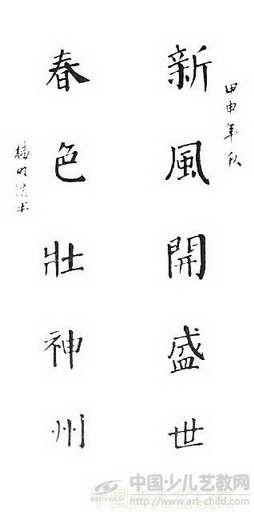 甲申年秋
新風開盛世
春色壯神州
中国少儿艺教网
http://www.art-child.com